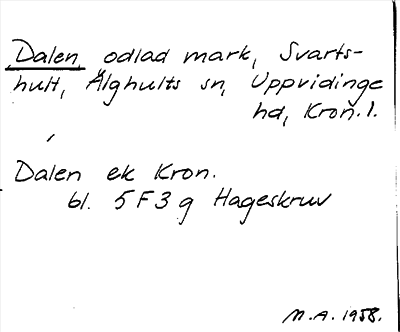 Dalen, odlad mark, Svarts-
hult, Älghults sn, Uppvidinge
hd, Kron. l.
Dalen ek Kron.
bl. 5 F 3 g Hageskruv
M.A. 1958.